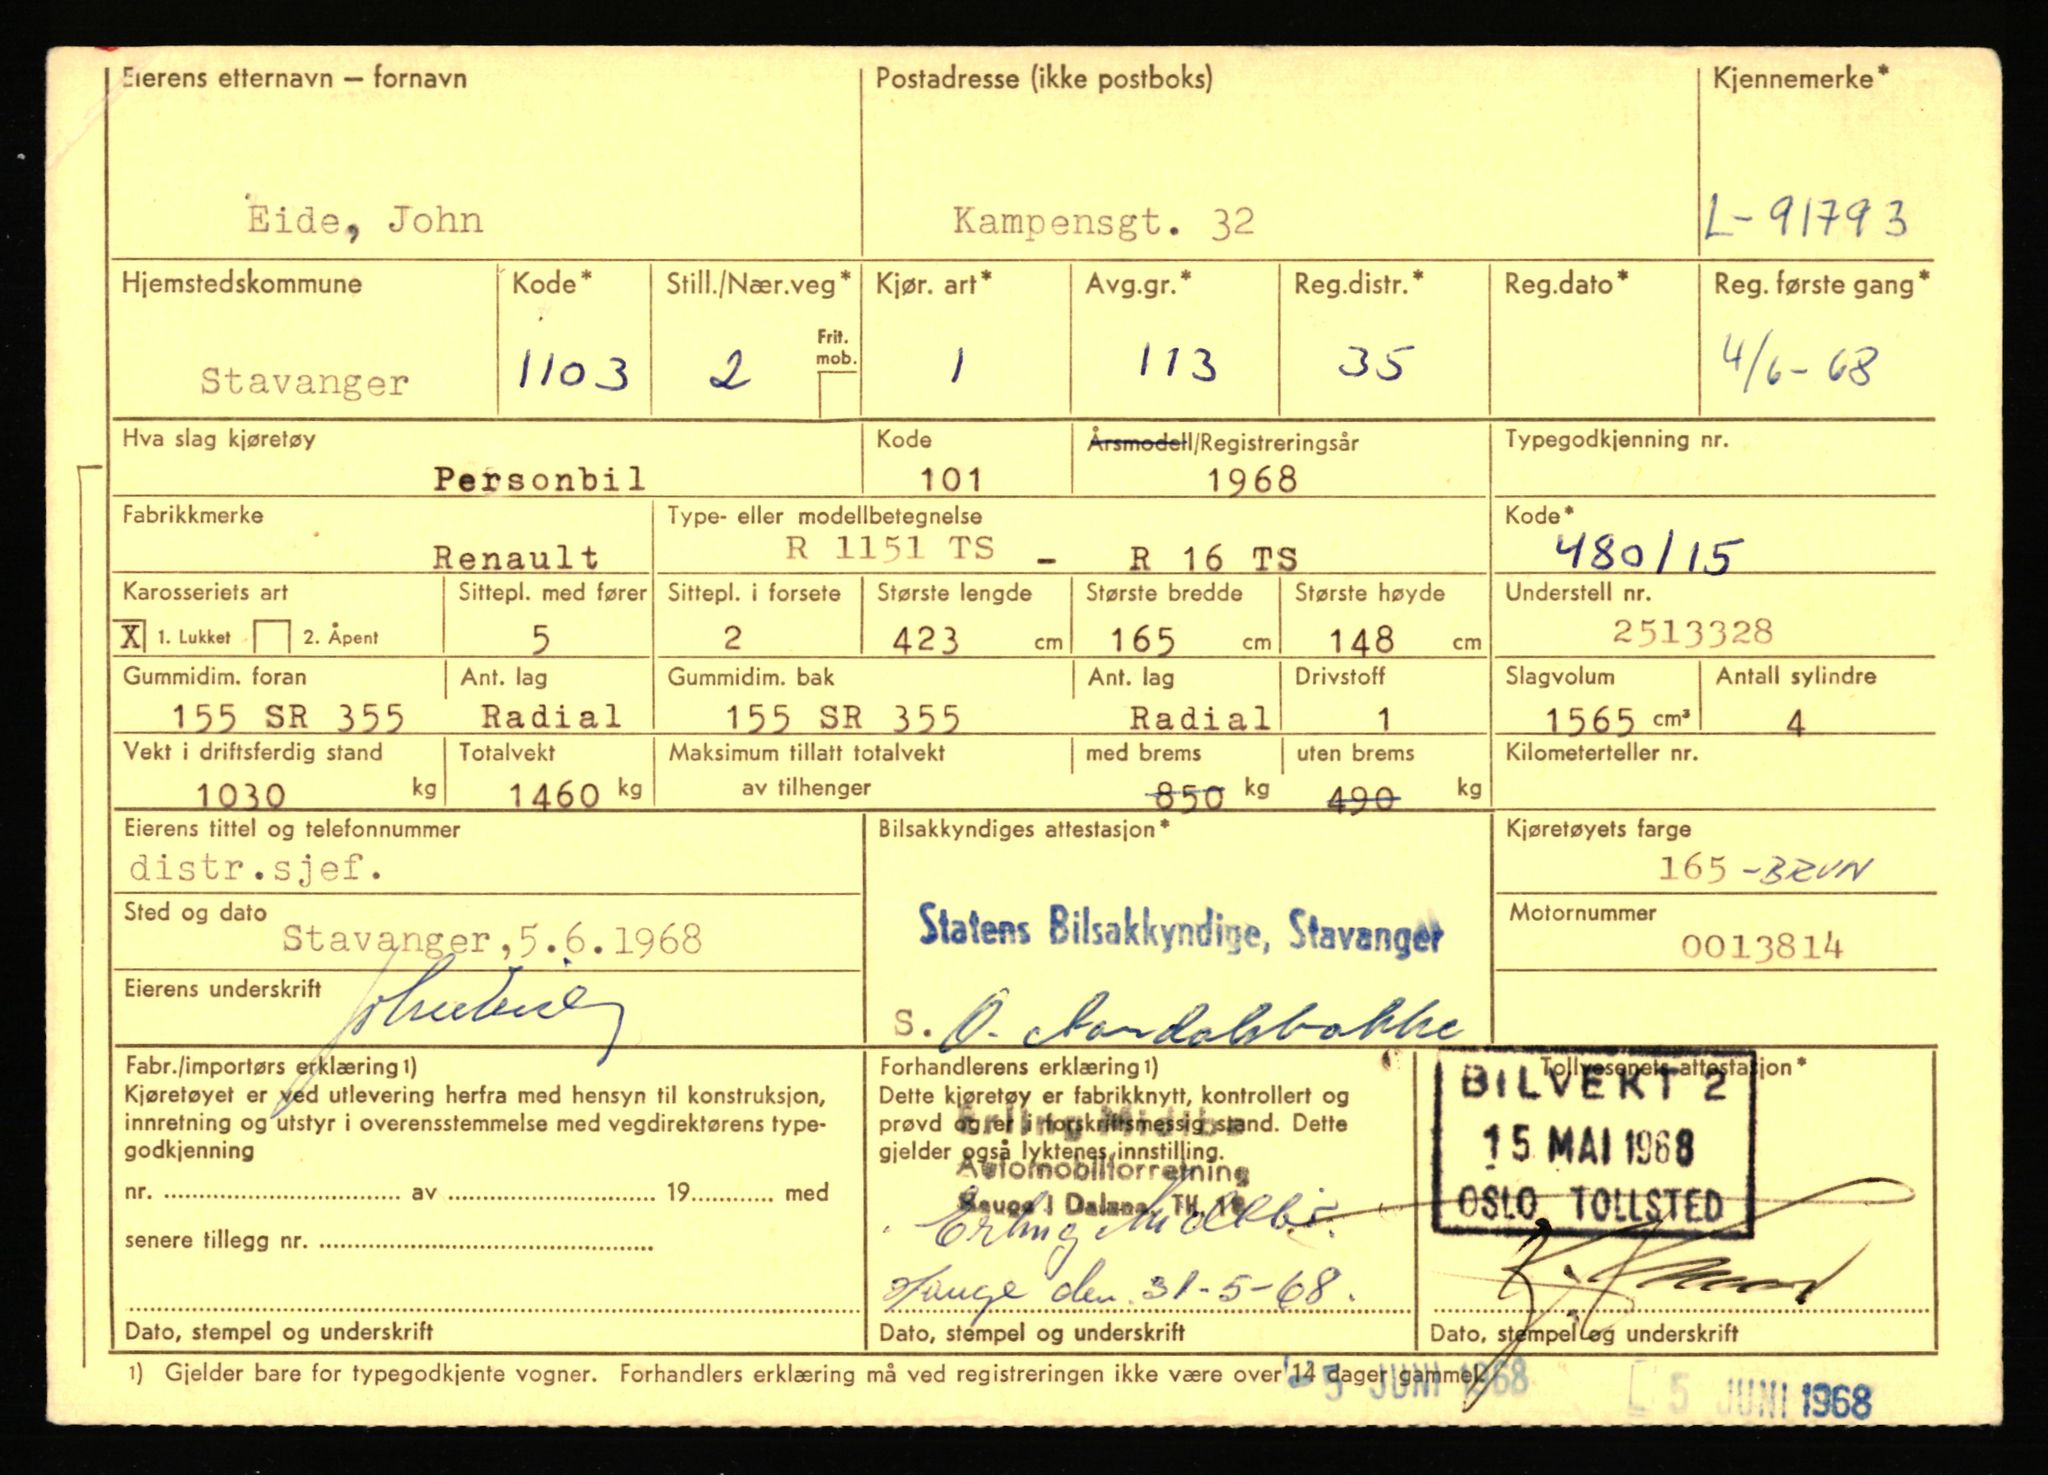 Eierens etternavn — fornavn
Postadresse (ikke postboks)
Kjennemerke*
Eide, John
Kampensgt. 32
L-91793
Hjemstedskommune
Kode*
Still./Nær.veg*
Kjør. art*
Avg.gr.*
Reg.distr.*
Reg.dato*
Reg. første gang*
Frit.
mob.
Stavanger
1103
2
1
113
35
4/6-68
Hva slag kjøretøy
Kode
Årsmodell/Registreringsår
Typegodkjenning nr.
Personbil
101
1968
Fabrikkmerke
Type- eller modellbetegnelse
Kode*
Renault
R 1151 TS - R 16 TS
480/15
Karosseriets art
Sittepl. med fører
Sittepl. i forsete
Største lengde
Største bredde
Største høyde
Understell nr.
X 1. Lukket
2. Åpent
5
2
423 cm
165 cm
148 cm
2513328
Gummidim. foran
Ant. lag
Gummidim. bak
Ant. lag
Drivstoff
Slagvolum
Antall sylindre
155 SR 355
Radial
155 SR 355
Radial
1
1565 cm³
4
Vekt i driftsferdig stand
Totalvekt
Maksimum tillatt totalvekt
med brems
uten brems
Kilometerteller nr.
1030 kg
1460 kg
av tilhenger
850 kg
490 kg
Eierens tittel og telefonnummer
Bilsakkyndiges attestasjon*
Kjøretøyets farge
distr.sjef.
165 -BRUN
Sted og dato
Stavanger,5.6.1968
Statens Bilsakkyndige, Stavanger
Motornummer
0013814
Eierens underskrift
S.
Fabr./importørs erklæring1)
Kjøretøyet er ved utlevering herfra med hensyn til konstruksjon,
innretning og utstyr i overensstemmelse med vegdirektørens type-
godkjenning
nr. .......... av .......... 19.......... med
senere tillegg nr. ..........
Dato, stempel og underskrift
Forhandlerens erklæring1)
Dette kjøretøy er fabrikknytt, kontrollert og
prøvd og er i forskriftsmessig stand. Dette
gjelder også lyktenes innstilling.
Erling Midbø
Automobilforretning
Hauge i Dalane, Tlf. 19
Erling Midbø
Hauge den 31-5-68.
Dato, stempel og underskrift
Tollvesenets attestasjon*
BILVEKT 2
15 MAI 1968
OSLO TOLLSTED
Dato, stempel og underskrift
1) Gjelder bare for typegodkjente vogner. Forhandlers erklæring må ved registreringen ikke være over 14 dager gammel.
5 JUNI 1968
5 JUNI 1968